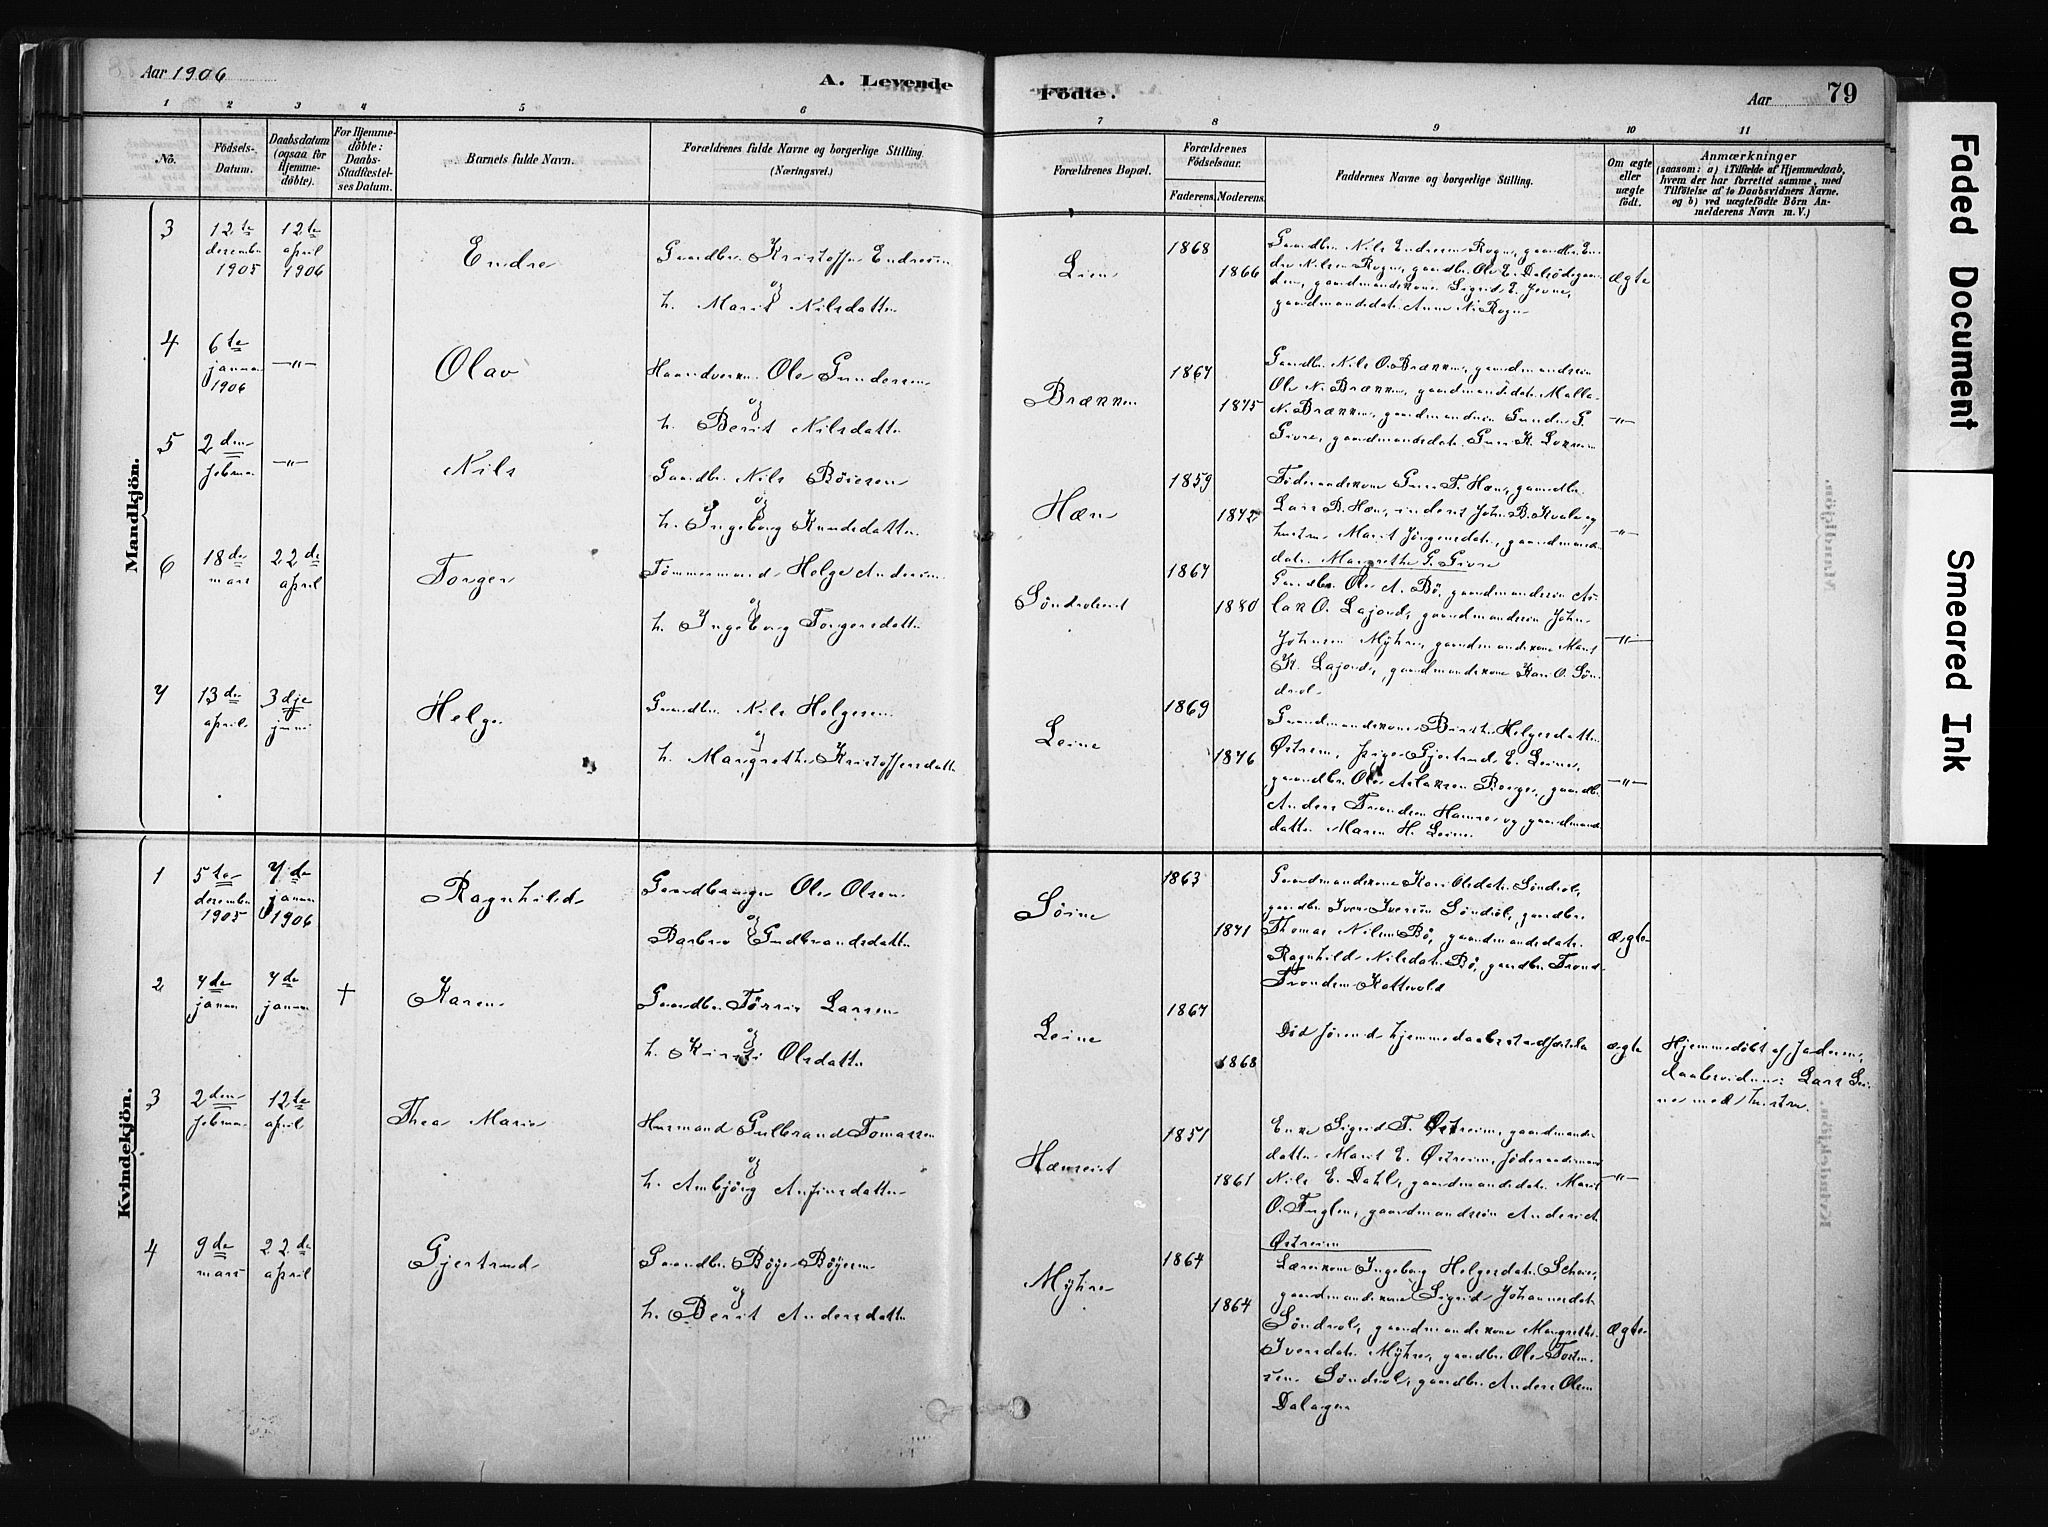 Aar 1906
A. Levende
Fødte.
Aar
79
1 2 3 4 5 6 7 8 9 10 11
No.
Fødsels-
Datum.
Daabsdatum
(ogsaa for
Hjemme-
døbte).
For Hjemme-
døbte:
Daabs-
Stadfæstel-
ses Datum.
Barnets fulde Navn.
Forældrenes fulde Navne og borgerlige Stilling.
(Næringsvei.)
Forældrenes Bopæl.
Forældrenes
Fødselsaar.
Faderens. Moderens.
Faddernes Navne og borgerlige Stilling.
Om ægte
eller
uægte
født.
Anmærkninger
(saasom: a) i Tilfælde af Hjemmedaab,
hvem der har forrettet samme, med
Tilføielse af to Daabsvidners Navne.
og b) ved uægtefødte Børn An-
melderens Navn m. V.)
Mandkjön.
3
12te
december
1905
12te
april
1906
Endre
Gaardbr. Kristoffer Endresen
og
h. Marit Nilsdatter
Lien
1868
1866
Gaardbr. Nils Endresen Rogn, gaardbr. En-
dre Nilsen Rogn, gaardbr. Ole E. Dalsödegaar-
den, gaardmandskone Sigrid E. Jevne,
gaardmandsdatr. Anne N. Rogn
ægte
4
6te
januar
1906
—"—
Olav
Haandverkm. Ole Gundersen
og
h. Berit Nilsdatter
Brækken
1867
1875
Gaardbr. Nils O. Brækken, gaardmandssøn
Ole N. Brækken, gaardmandsdatr. Malla
N. Brækken, gaardmandssøn Gunder G.
Givre, gaardmandsdatr. Guri K.
—"—
5
2den
februar
—"—
Nils
Gaardbr. Nils Böiesen
og
h. Ingeborg Knudsdatter
Hæn
1859
1872
Föderaadskone Guri T. Hæn, gaardbr.
Lars B. Hæn, inderst John B. Kvale og
hustru Marit Jörgensdatr., gaardmands-
datr. Margrethe G. Givre
—"—
6
18de
mars
22de
april
Torger
Tømmermand Helge Andersen
og
h. Ingeborg Torgersdatter
Söndroleiet
1867
1880
Gaardbr. Ole A. Bö, gaardmandssøn As-
lak O. Lajord, gaardmandssøn John
Johnsen Mÿhre, gaardmandskone Marit
K. Lajord, gaardmandskone Kari O. Sön-
drol
—"—
7
13de
april
3dje
juni
Helge
Gaardbr. Nils Helgesen
og
h. Margrethe Kristoffersdatter
Leine
1869
1876
Gaardmandskone Birith Helgesdatter
Østrem, pige Gjertrud E. Leine,
gaardbr. Ole Aslaksen Berge, gaardbr.
Anders Trondsen Hamre og gaardmands-
datter Maren H. Leine.
—"—
Kvindekjön.
1
5te
december
1905
7de
januar
1906
Ragnhild
Gaardbruger Ole Olsen
og
Barbro Gudbrandsdatter
Söine
1863
1871
Gaardmandskone Kari Olsdatr. Söndrol,
gaardbr. Iver Iversen Söndrol, gaardbr.
Thomas Nilsen Bö, gaardmandsdatr.
Ragnhild Nilsdatr. Bö, gaardbr. Trond
Trondsen Kattevold
ægte
2
7de
januar
7de
januar
+
Karen
Gaardbr. Törris Larsen
og
h. Kirsti Olsdatter
Leine
1867
1868
Död förend hjemmedaabsstadfæstelse
ægte
Hjemmedøbt af faderen,
daabsvidner: Lars Lei-
ne med hustru.
3
2den
februar
12te
april
Thea Marie
Husmand Gulbrand Tomassen
og
h. Ambjörg Anfinsdatter
Hæneeiet
1851
1861
Enke Sigrid T. Østreim, gaardmands-
datter Marit E. Østreim, föderaadsmand
Nils E. Dahl, gaardmandsdatr. Marit
O. Fuglen, gaardmandssøn Anders A.
Østreim
—"—
4
9de
mars
22de
april
Gjertrud
Gaardbr. Böye Böyesen
og
h. Berit Andersdatter
Mÿhre
1864
1864
Lærerkone Ingeborg Helgesdatr. Scheie,
gaardmandskone Sigrid Johannesdatr.
Söndrol, gaardmandskone Margrethe
Iversdatr. Mÿhre, gaardbr. Ole Torten-
sen Söndrol, gaardbr. Anders Olsen
Dalagen
ægte
Faded Document
Smeared Ink